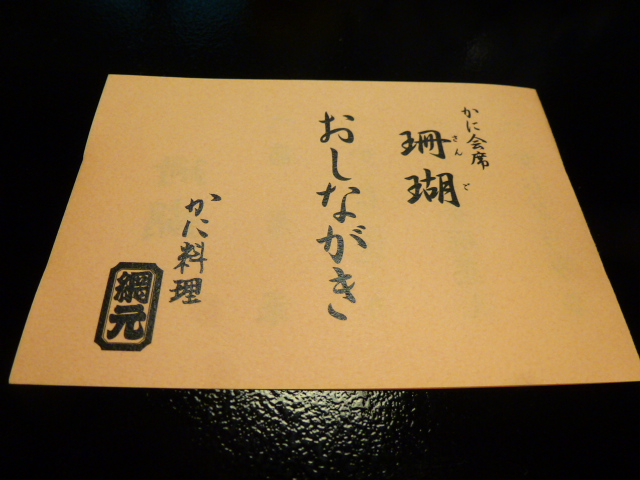 かに会席
珊瑚
さんご
おしながき
かに料理
網元